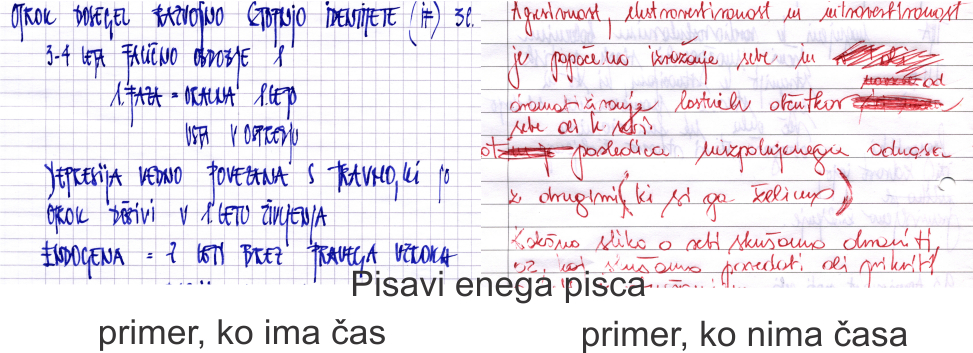 OTROK DOSEGEL RAZVOJNO STOPNJO IDENTITETE
3-4 LETA FALIČNO OBDOBJE
1. FAZA = ORALNA 1. LETO
USTA V OSPREDJU
DEPRESIJA VEDNO POVEZANA S TRAVMO, KI JO
OTROK DOŽIVI V 1. LETU ŽIVLJENJA
ENDOGENA = BREZ PRAVEGA VZROKA
Agresivnost, in
je popačeno izražanje sebe in
od
dramatiziranje lastnih občutkov
sebe ali k sebi.
posledica neizpolnjenega odnosa
z drugimi (ki si ga želimo)
sliko o sebi skušamo ohraniti,
oz. kaj skušamo povedati ali prikriti
Pisavi enega pisca
primer, ko ima čas
primer, ko nima časa